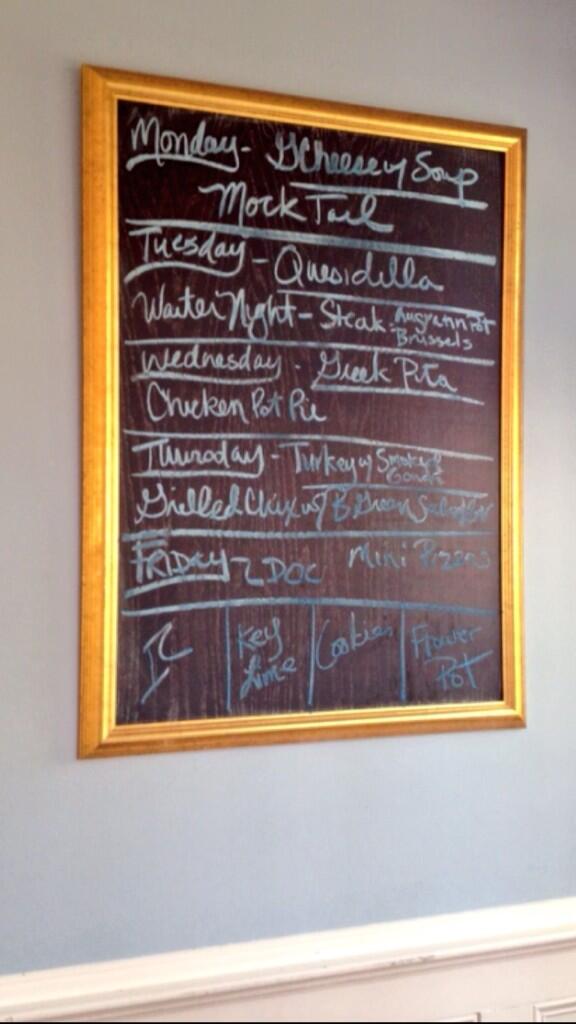 Monday - GCheese w/ Soup
Mock Tail
Tuesday - Quesidilla
Waiter Night - Steak - Augrann Pot
Brussels
Wednesday - Greek Pita
Chicken Pot Pie
Thursday - Turkey w/ Smoked
Gouda
Grilled Chix w/ B Green Salad
FRIDAY - DOC Mini Pizzas
IC Key Lime Cookies Flower Pot